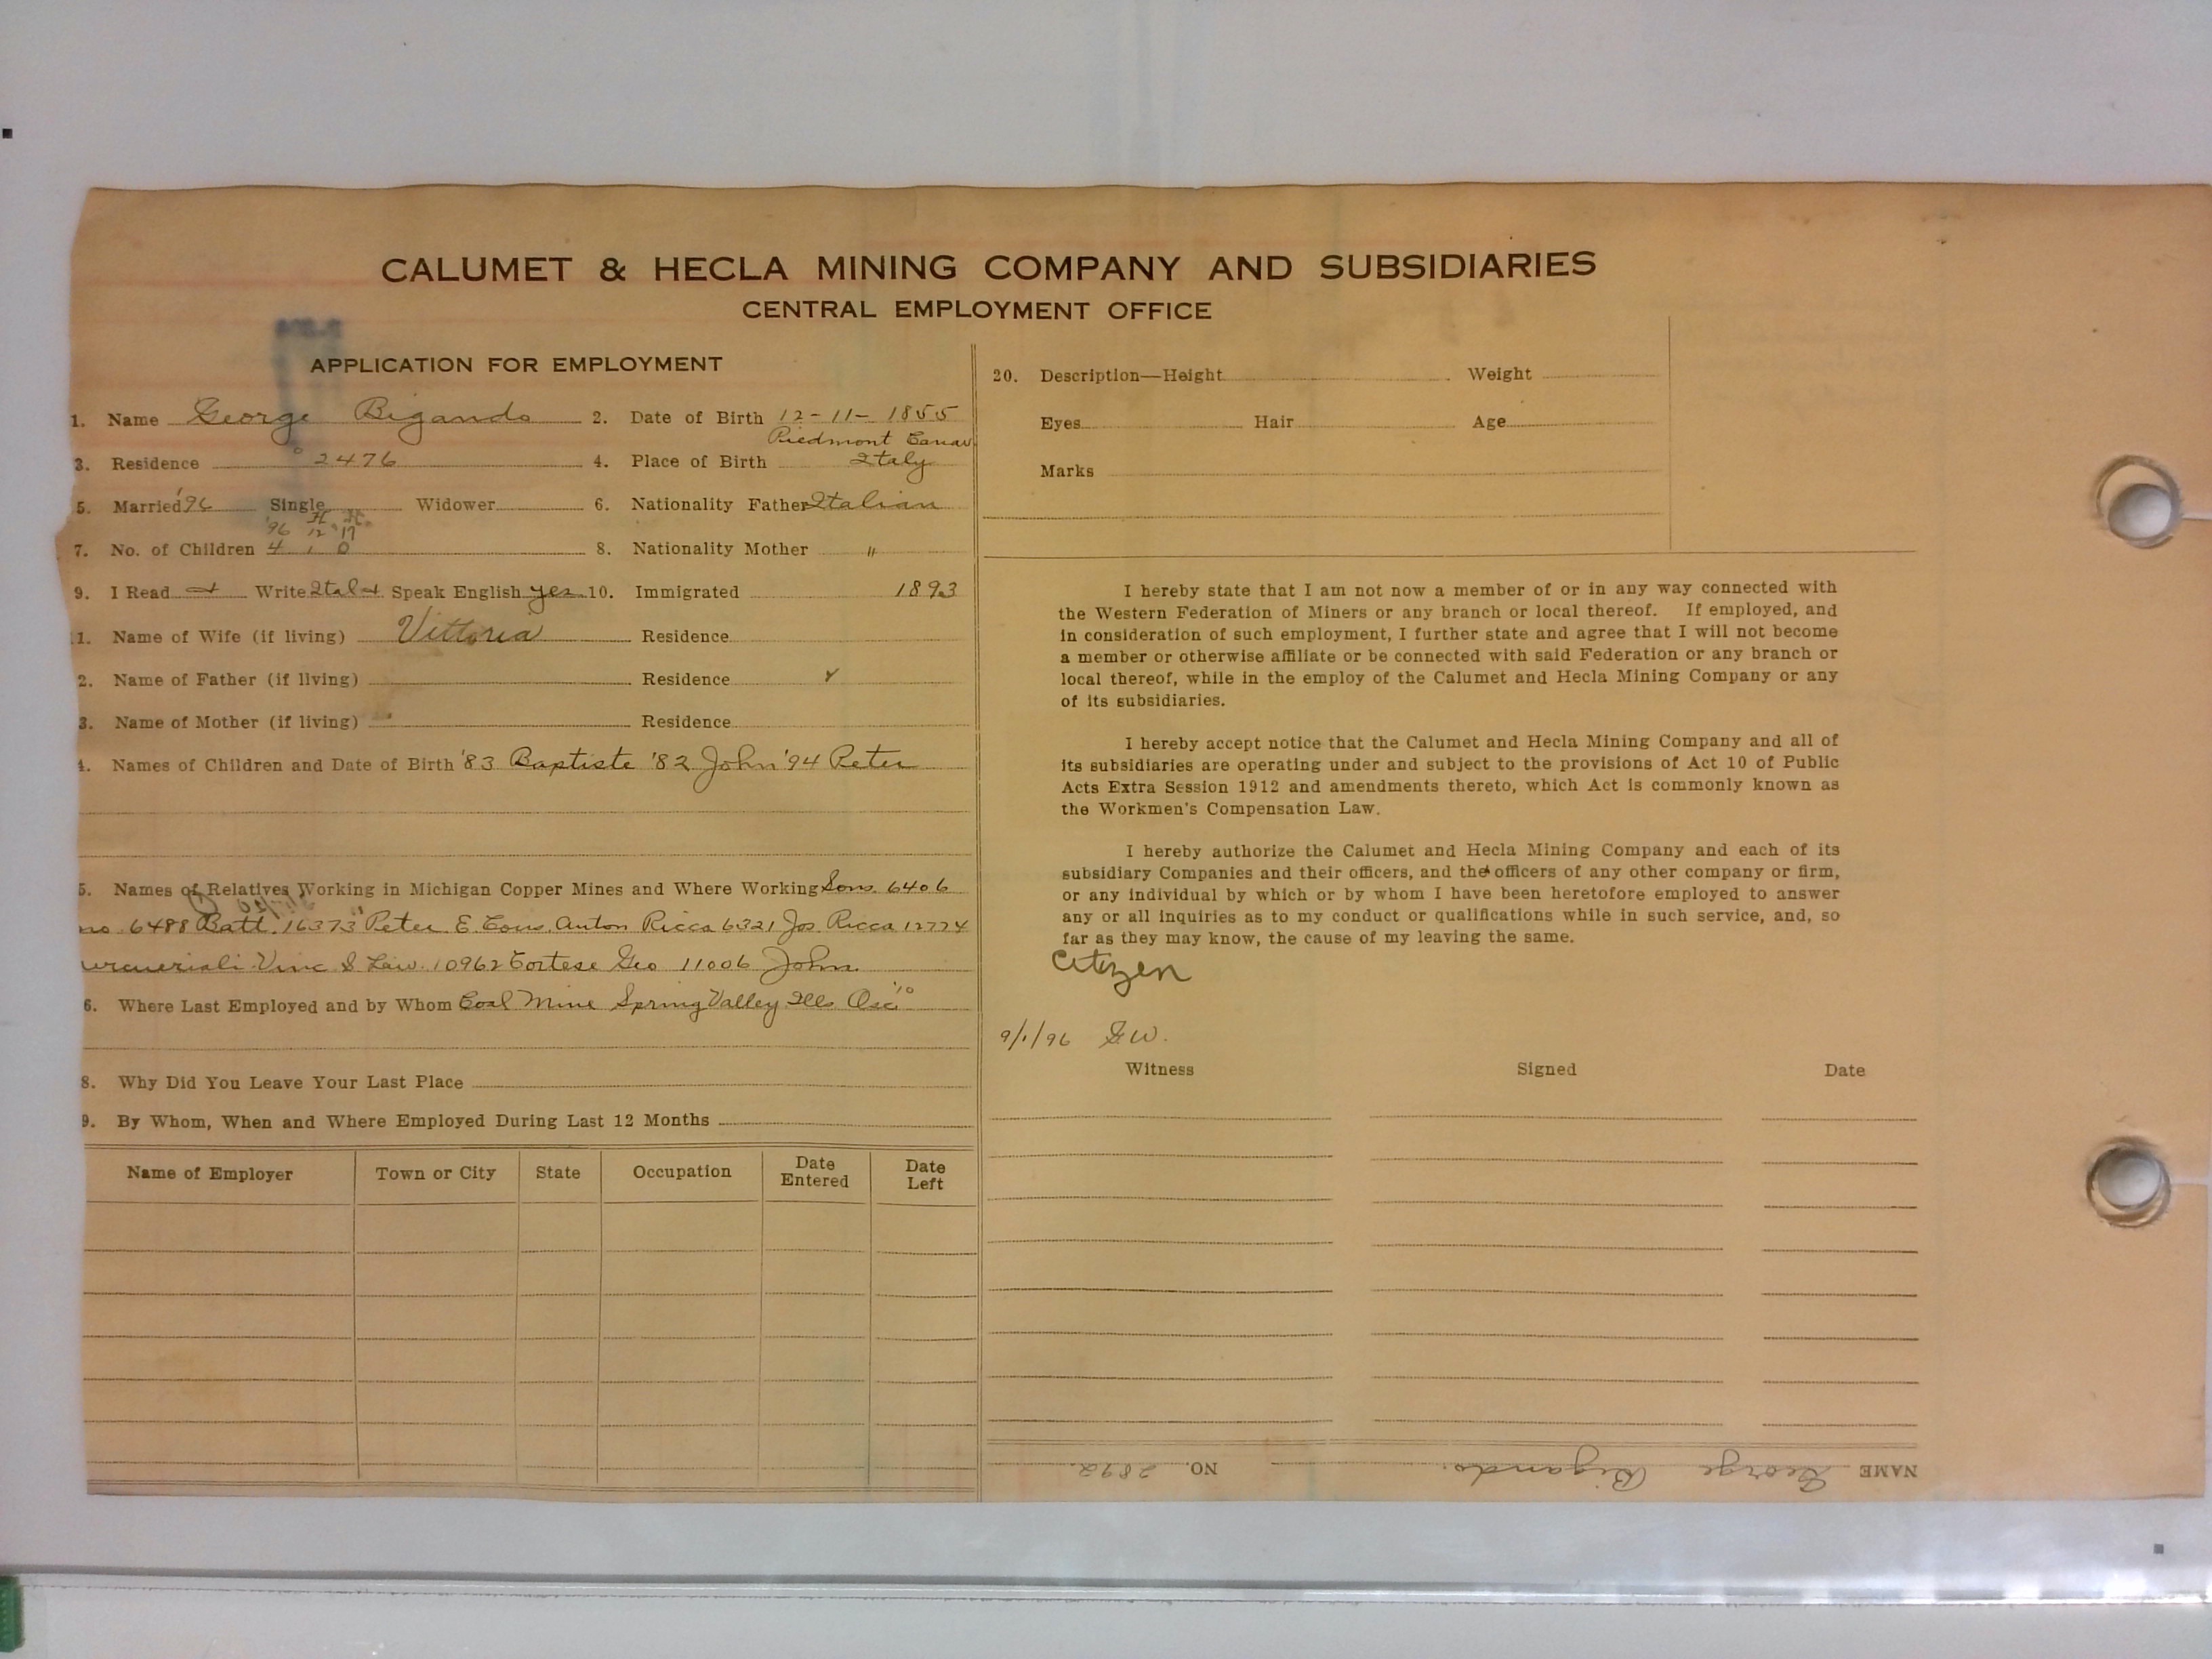 CALUMET & HECLA MINING COMPANY AND SUBSIDIARIES
CENTRAL EMPLOYMENT OFFICE
APPLICATION FOR EMPLOYMENT
1. Name George Bigando 2. Date of Birth 12-11-1855
Piedmont
3. Residence 2476 4. Place of Birth Italy
5. Married '96 Single Widower 6. Nationality Father Italian
'96 '12 '17
7. No. of Children 4 1 0 8. Nationality Mother "
9. I Read Write Ital Speak English yes 10. Immigrated 1893
1. Name of Wife (if living) Vittoria Residence
2. Name of Father (if living) Residence
3. Name of Mother (if living) Residence
4. Names of Children and Date of Birth '83 Baptiste '82 John '94 Peter
5. Names of Relatives Working in Michigan Copper Mines and Where Working Sons 6406
6488 Batt. 16373 Peter E. Cous. Anton Ricca 6321 Jos. Ricca 12774
Vinc S Law. 10962 Cortese Geo 11006 John
6. Where Last Employed and by Whom Coal Mine Spring Valley Ills '10
8. Why Did You Leave Your Last Place
9. By Whom, When and Where Employed During Last 12 Months
Name of Employer Town or City State Occupation Date Entered Date Left
20. Description—Height Weight
Eyes Hair Age
Marks
I hereby state that I am not now a member of or in any way connected with
the Western Federation of Miners or any branch or local thereof. If employed, and
in consideration of such employment, I further state and agree that I will not become
a member or otherwise affiliate or be connected with said Federation or any branch or
local thereof, while in the employ of the Calumet and Hecla Mining Company or any
of its subsidiaries.
I hereby accept notice that the Calumet and Hecla Mining Company and all of
its subsidiaries are operating under and subject to the provisions of Act 10 of Public
Acts Extra Session 1912 and amendments thereto, which Act is commonly known as
the Workmen's Compensation Law.
I hereby authorize the Calumet and Hecla Mining Company and each of its
subsidiary Companies and their officers, and the officers of any other company or firm,
or any individual by which or by whom I have been heretofore employed to answer
any or all inquiries as to my conduct or qualifications while in such service, and, so
far as they may know, the cause of my leaving the same.
Citizen
9/1/96 G.W.
Witness Signed Date
NAME George Bigando. NO. 2892